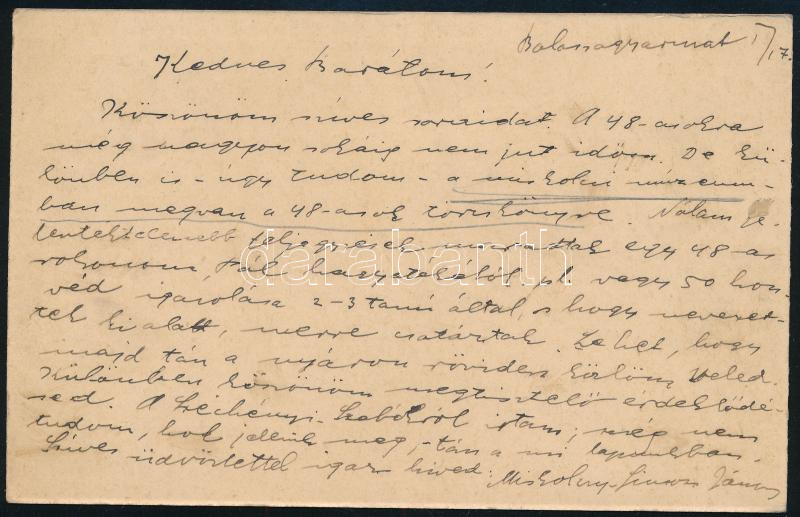 Balassagyarmat I/17.
Kedves Barátom!
Köszönöm szíves soraidat. A 48-asokra
még nagyon sokáig nem jut időm. De kü-
lönben is - úgy tudom - a miskolci múzeum-
ban megvan a 48-asok törzskönyve. Nálam je-
lentéktelenebb feljegyzések maradtak egy 48-as
rokonom, Pál hagyatékából, vagy 50 hon-
véd igazolása 2-3 tanú által, s hogy nevezet-
tek ki alatt, merre csatáztak. Lehet, hogy
majd tán a nyáron röviden közlöm Veled.
Különben köszönöm megtisztelő érdeklődé-
sed. A Széchényi-Szebőkről írtam; még nem
tudom, hol jelenik meg, - tán a mi lapunkban.
Szíves üdvözlettel igaz híved: Miskolczy-Simon János
darabanth